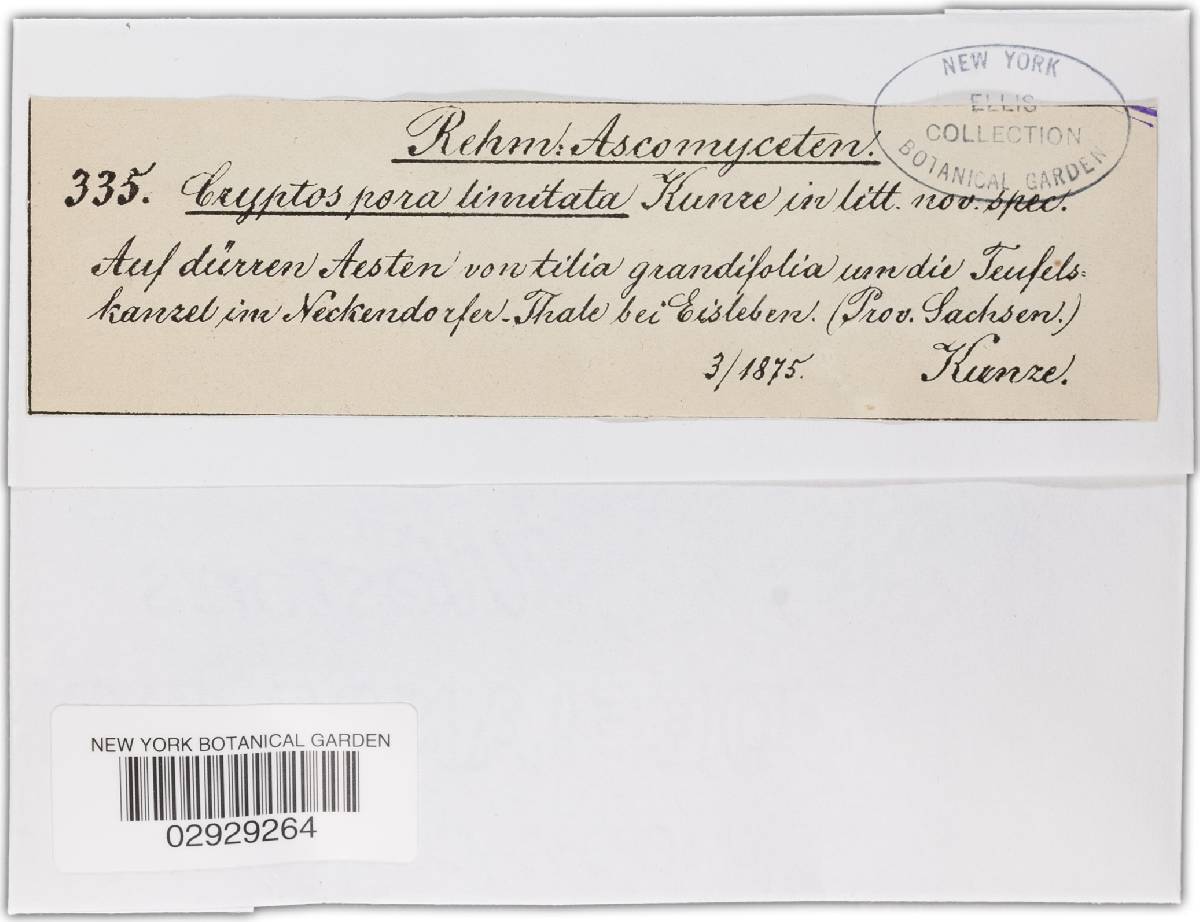 NEW YORK
ELLIS
COLLECTION
BOTANICAL GARDEN
Rehm: Ascomyceten.
335. Cryptospora limitata Kunze in litt. nov. spec.
Auf dürren Aesten von tilia grandifolia um die Teufels=
kanzel im Neckendorfer-Thale bei Eisleben. (Prov. Sachsen.)
3/1875. Kunze.
NEW YORK BOTANICAL GARDEN
02929264